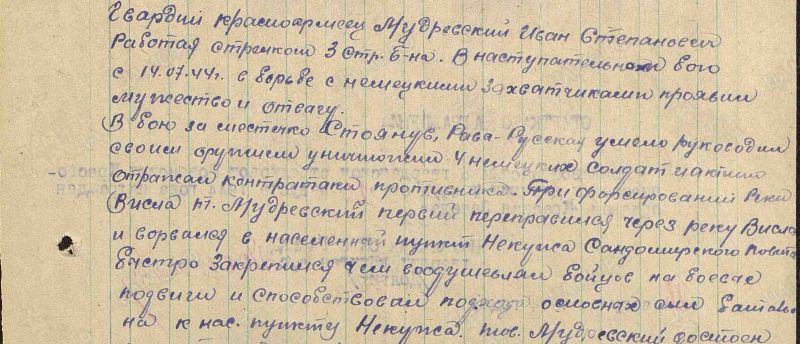 Гвардии красноармеец Мудревский Иван Степанович
Работая стрелком 3 стр. б-на. В наступательном бою
с 14.07.44г. в борьбе с немецкими захватчиками проявил
мужество и отвагу.
В бою за местечко Стоянув, Рава-Русская умело руководил
своим оружием уничтожил 4 немецких солдат
отражал контратаки противника. При форсировании Реки
Висла т. Мудревский первый переправился через реку Висла
и ворвался в населенный пункт Некужа Сандомирского повята
быстро закрепился чем воодушевлял бойцов на боевые
подвиги и способствовал подхода основных сил баталь
на к нас. пункту Некужа. тов. Мудревский достоен